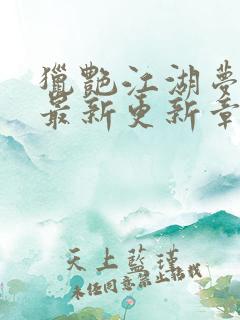 獵艷江湖夢
最新更新章
天上藍瑾
未經同意禁止轉載